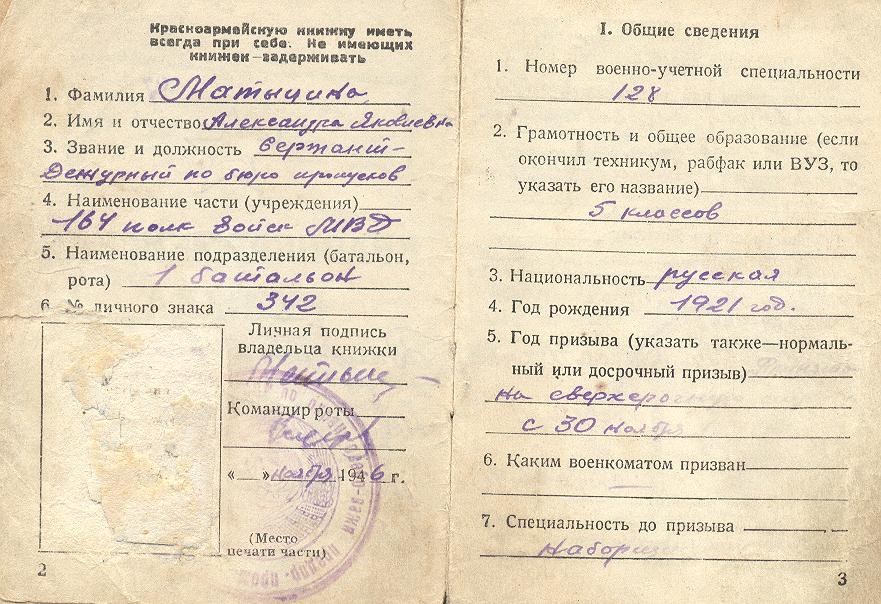 Красноармейскую книжку иметь
всегда при себе. Не имеющих
книжек—задерживать
1. Фамилия Матыцина
2. Имя и отчество Александра Яковлевна
3. Звание и должность Сержант-
Дежурный по бюро пропусков
4. Наименование части (учреждения)
164 полк Войск МВД
5. Наименование подразделения (батальон,
рота) 1 батальон
6 № личного знака 342
Личная подпись
владельца книжки
Командир роты
« » ноября 1946 г.
(Место
печати части)
2
I. Общие сведения
1. Номер военно-учетной специальности
128
2. Грамотность и общее образование (если
окончил техникум, рабфак или ВУЗ, то
указать его название)
5 классов
3. Национальность русская
4. Год рождения 1921 год.
5. Год призыва (указать также—нормаль-
ный или досрочный призыв)
на
с 30 ноября
6. Каким военкоматом призван
—
7. Специальность до призыва
3